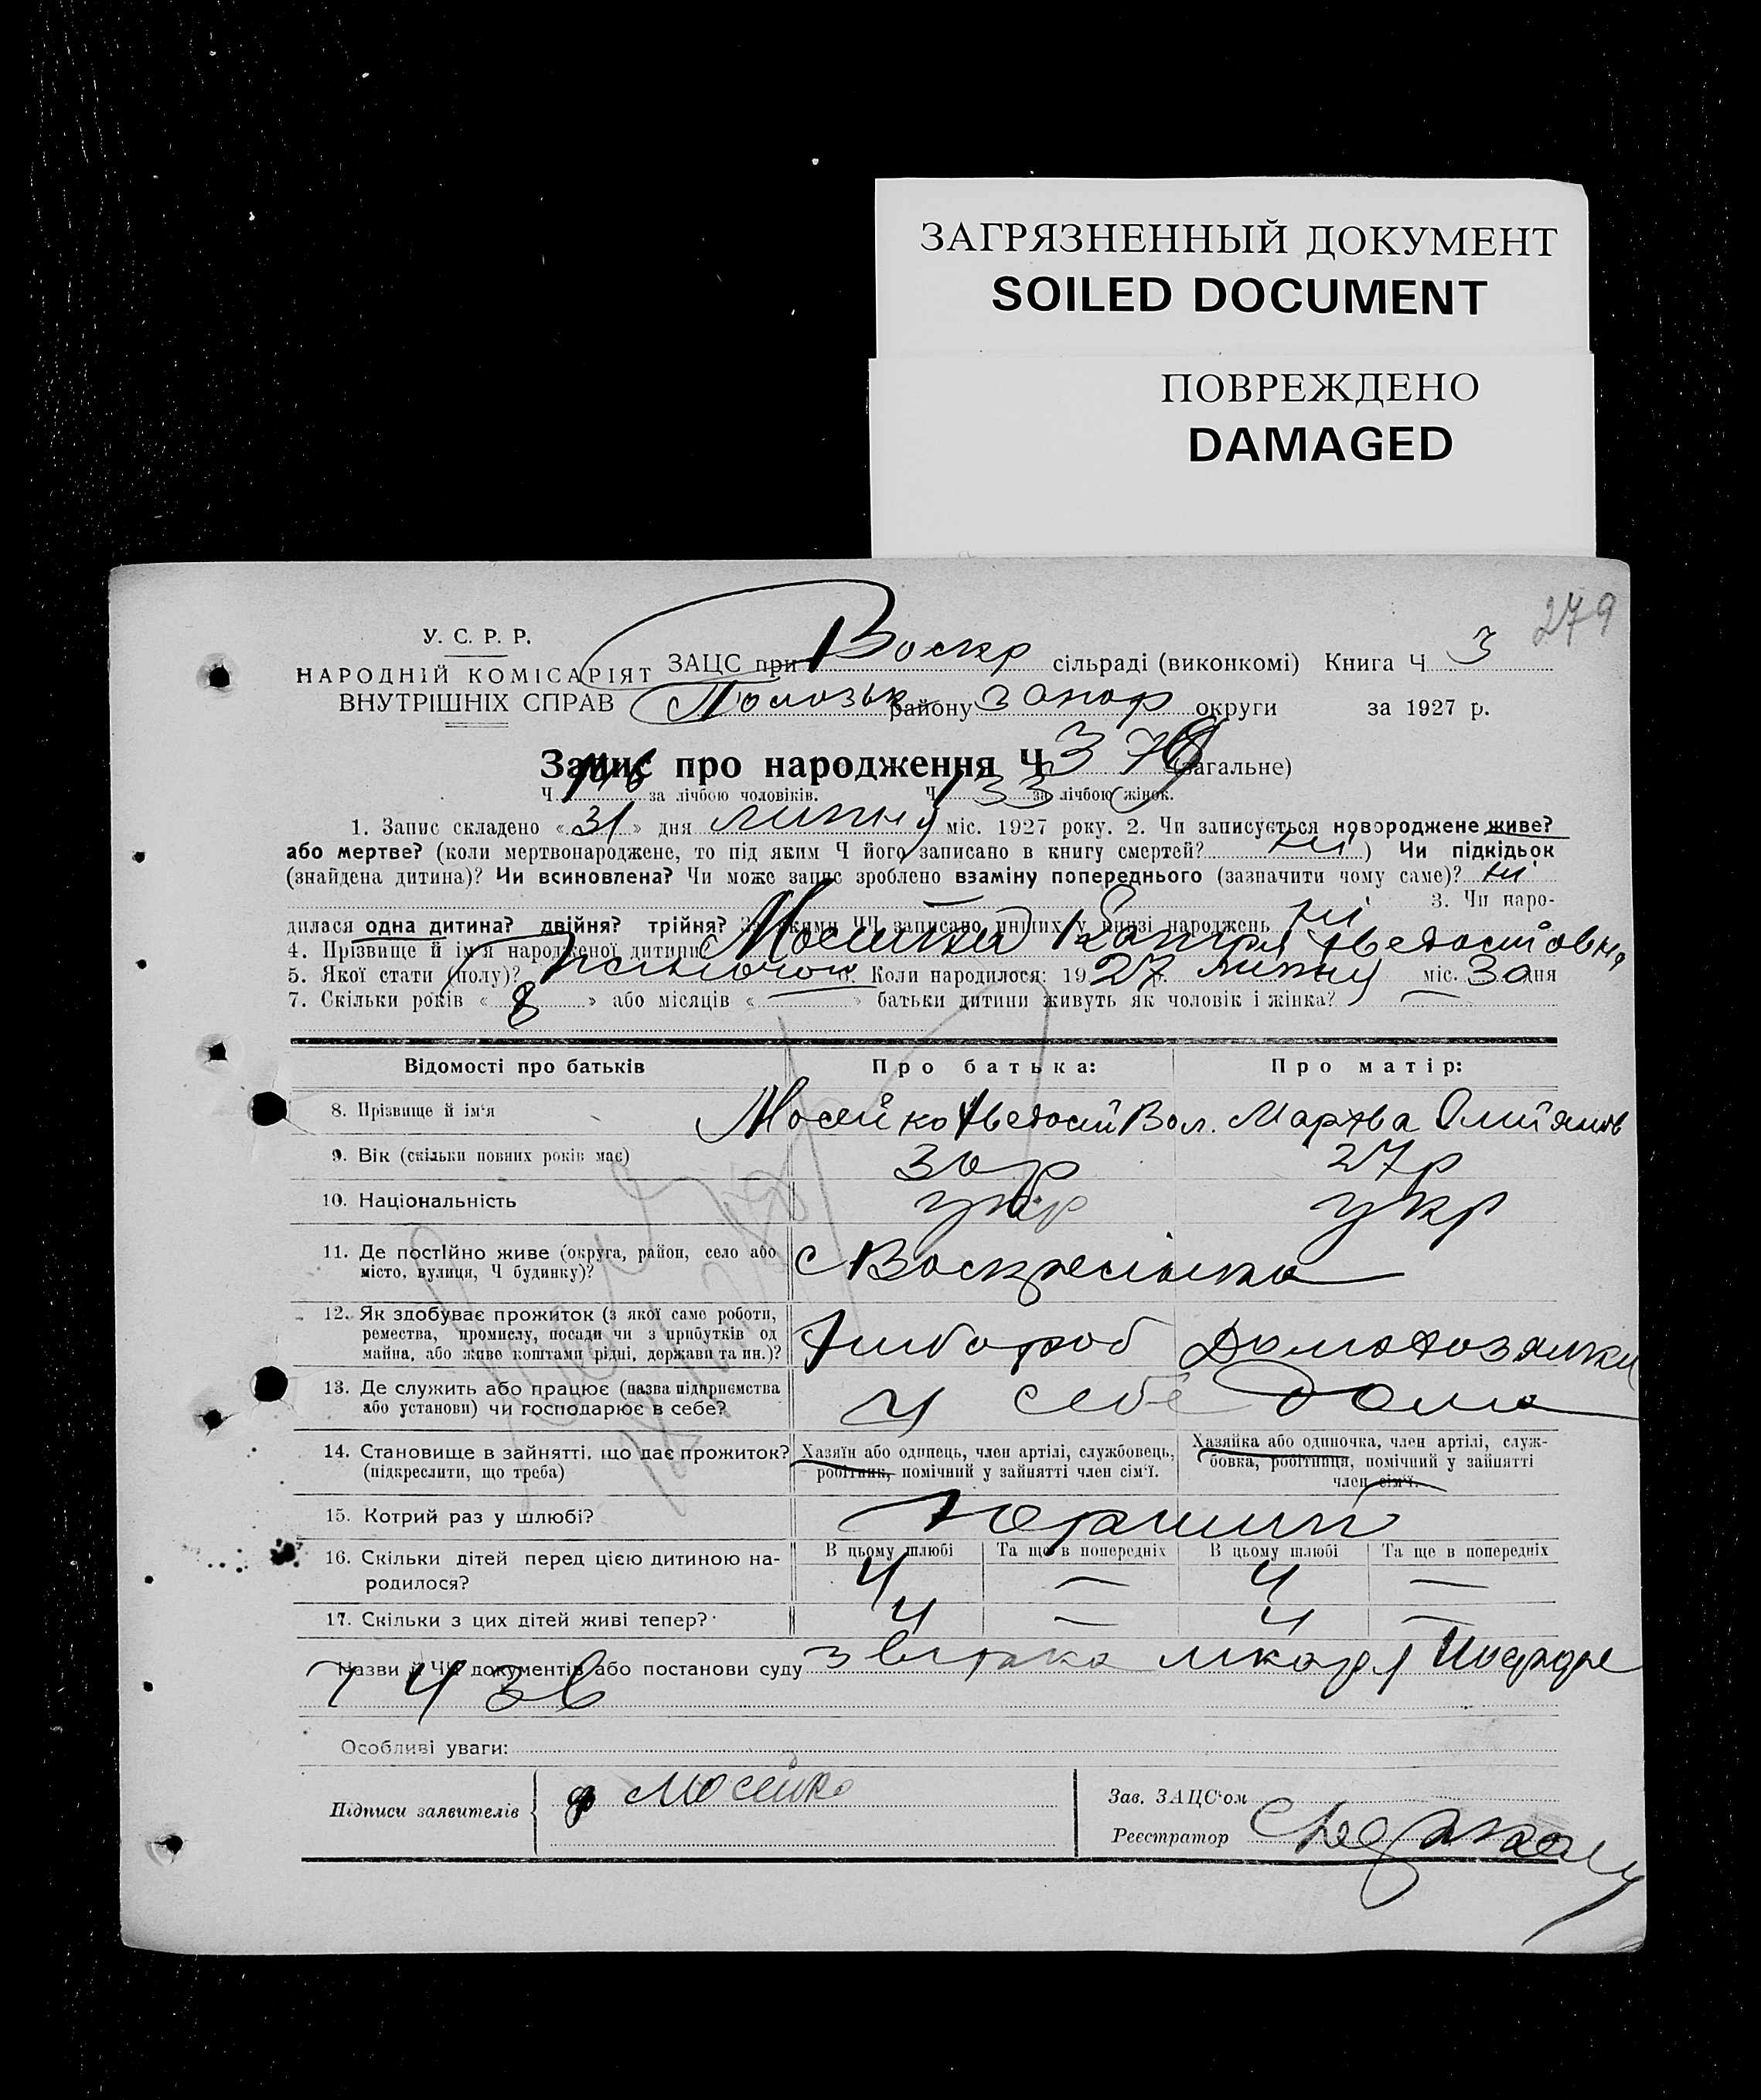 ЗАГРЯЗНЕННЫЙ ДОКУМЕНТ
SOILED DOCUMENT
ПОВРЕЖДЕНО
DAMAGED
279
У. С. Р. Р.
НАРОДНІЙ КОМІСАРІЯТ
ВНУТРІШНІХ СПРАВ
ЗАЦС при Воскр сільраді (виконкомі) Книга Ч 3
Пологськ району Запор округи за 1927 р.
Запис про народження Ч 379 (загальне)
Ч 146 за лічбою чоловіків. Ч 133 за лічбою жінок.
1. Запис складено « 31 » дня липня міс. 1927 року. 2. Чи записується новороджене живе?
або мертве? (коли мертвонароджене, то під яким Ч його записано в книгу смертей? ні ) Чи підкідьок
(знайдена дитина)? Чи всиновлена? Чи може запис зроблено взаміну попереднього (зазначити чому саме)? ні
3. Чи наро-
дилася одна дитина? двійня? трійня? За якими ЧЧ записано инших у книзі народжень ні
4. Прізвище й ім'я народженої дитини
5. Якої стати (полу)? 6. Коли народилося: 1927 р. липня міс. 30 дня
7. Скільки років « 8 » або місяців « — » батьки дитини живуть як чоловік і жінка? —
Відомості про батьків Про батька: Про матір:
8. Прізвище й ім'я Мосейко Хведосий Вол. Мархва
9. Вік (скільки повних років має) 30 р 27 р
10. Національність укр укр
11. Де постійно живе (округа, район, село або
місто, вулиця, Ч будинку)? с Воскресінка
12. Як здобуває прожиток (з якої саме роботи,
ремества, промислу, посади чи з прибутків од
майна, або живе коштами рідні, держави та ин.)? Хлібороб Домохозяйка
13. Де служить або працює (назва підприємства
або установи) чи господарює в себе? у себе дома
14. Становище в зайнятті, що дає прожиток?
(підкреслити, що треба)
Хазяїн або одинець, член артілі, службовець,
робітник, помічний у зайнятті член сім'ї.
Хазяйка або одиночка, член артілі, служ-
бовка, робітниця, помічний у зайнятті
член сім'ї.
15. Котрий раз у шлюбі? перший
16. Скільки дітей перед цією дитиною на-
родилося?
В цьому шлюбі Та ще в попередніх В цьому шлюбі Та ще в попередніх
4 — 4 —
17. Скільки з цих дітей живі тепер? 4 — 4 —
Назви й ЧЧ документів або постанови суду
Особливі уваги:
Підписи заявителів Мосейко
Зав. ЗАЦС'ом
Реєстратор